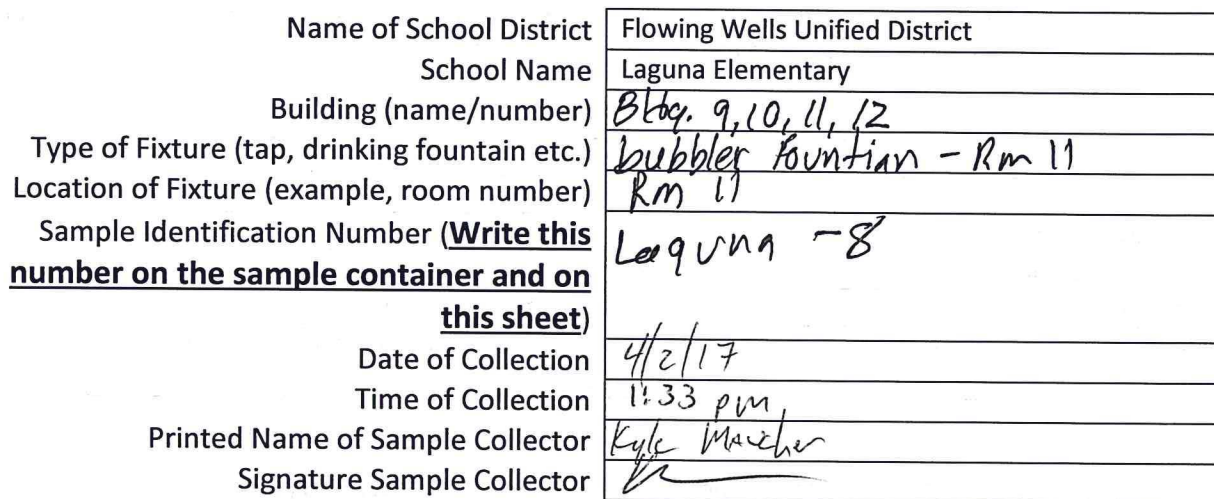 Name of School District Flowing Wells Unified District
School Name Laguna Elementary
Building (name/number) Bldg. 9,10,11,12
Type of Fixture (tap, drinking fountain etc.) bubbler Fountian - Rm 11
Location of Fixture (example, room number) Rm 11
Sample Identification Number (Write this Laguna -8
number on the sample container and on
this sheet)
Date of Collection 4/2/17
Time of Collection 1:33 pm
Printed Name of Sample Collector Kyle
Signature Sample Collector